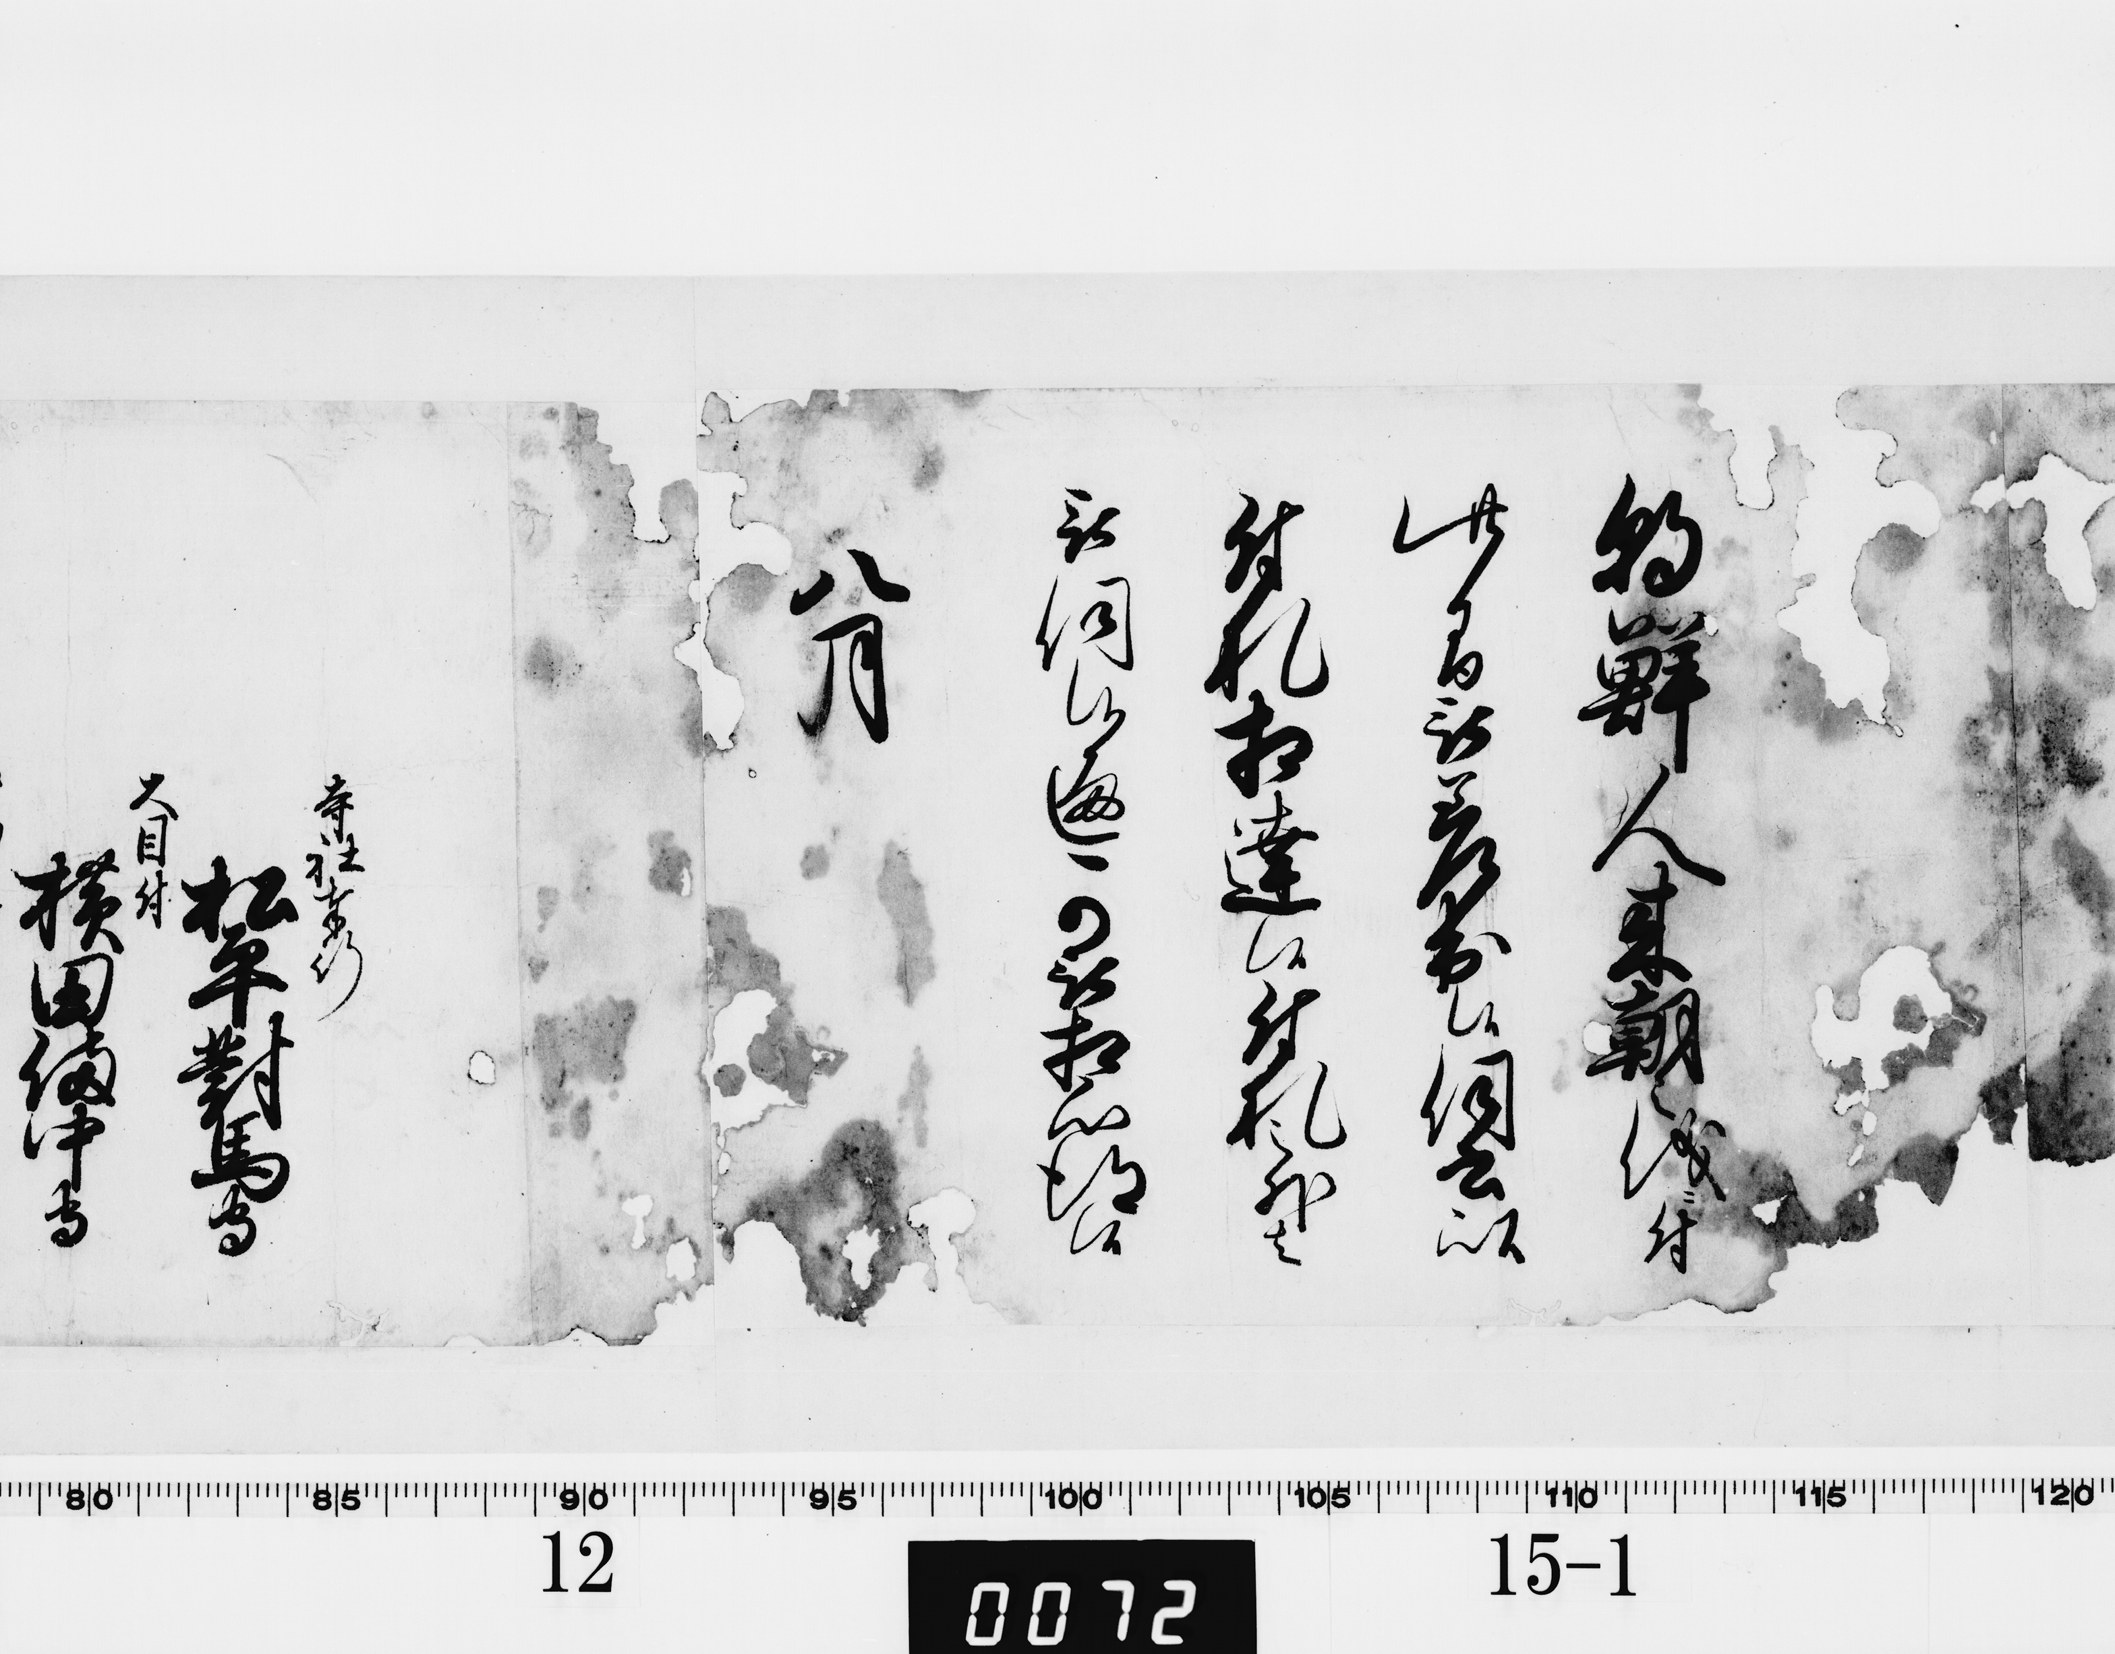 朝鮮人来朝之儀ニ付
此間被差出書候伺
付札相達候付札外者
被伺候通ニ可被相心得候
八月
寺社奉行
松平對馬守
大目付
横田備中守
80 85 90 95 100 105 110 115 120
12
0072
15-1